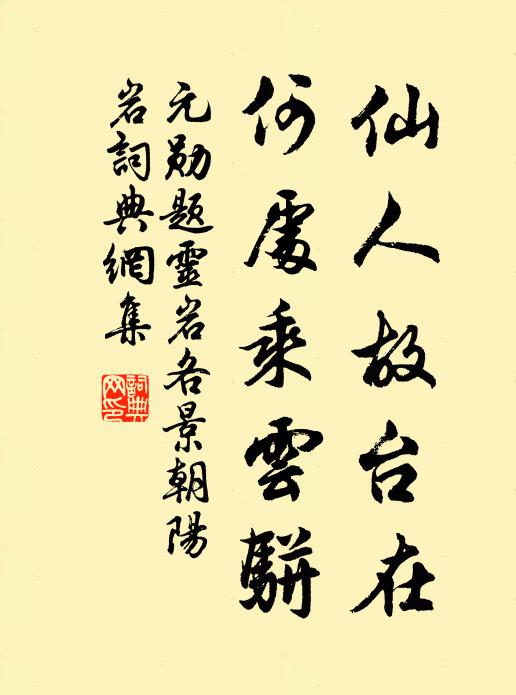 仙人故台在
何處乘雲騈
元勛題靈岩各景朝陽
岩詞典網集
詞典
网印